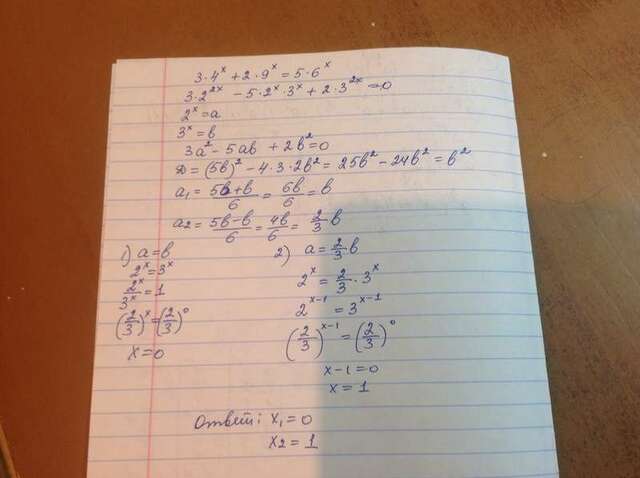 3·4^x + 2·9^x = 5·6^x
3·2^{2x} - 5·2^x·3^x + 2·3^{2x} = 0
2^x = a
3^x = b
3a² - 5ab + 2b² = 0
D = (5b)² - 4·3·2b² = 25b² - 24b² = b²
a₁ = (5b+b)/6 = 6b/6 = b
a₂ = (5b-b)/6 = 4b/6 = 2/3 b
1) a = b
2^x = 3^x
2^x/3^x = 1
(2/3)^x = (2/3)^0
x = 0
2) a = 2/3 b
2^x = 2/3 · 3^x
2^{x-1} = 3^{x-1}
(2/3)^{x-1} = (2/3)^0
x-1 = 0
x = 1
Ответ: x₁ = 0
x₂ = 1